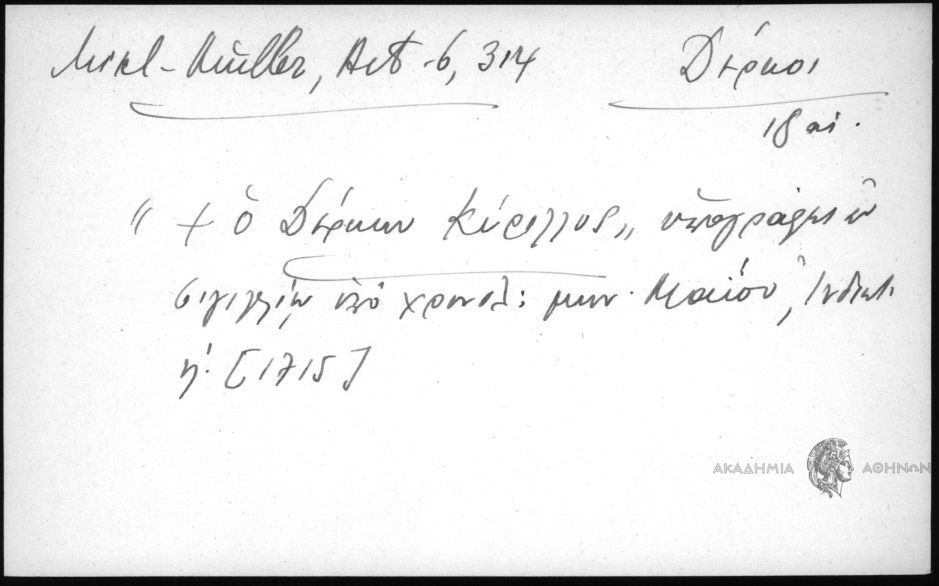 Mikl-Müller, Act -6, 314 Δέρκοι
18 αἰ.
" + ὁ Δέρκων Κύριλλος „ ὑπογράφει ἐν
σιγιλλίῳ ὑπὸ χρονολ: μην. Μαΐου, Ἰνδικτ.
η΄. [1715]
ΑΚΑΔΗΜΙΑ ΑΘΗΝΩΝ